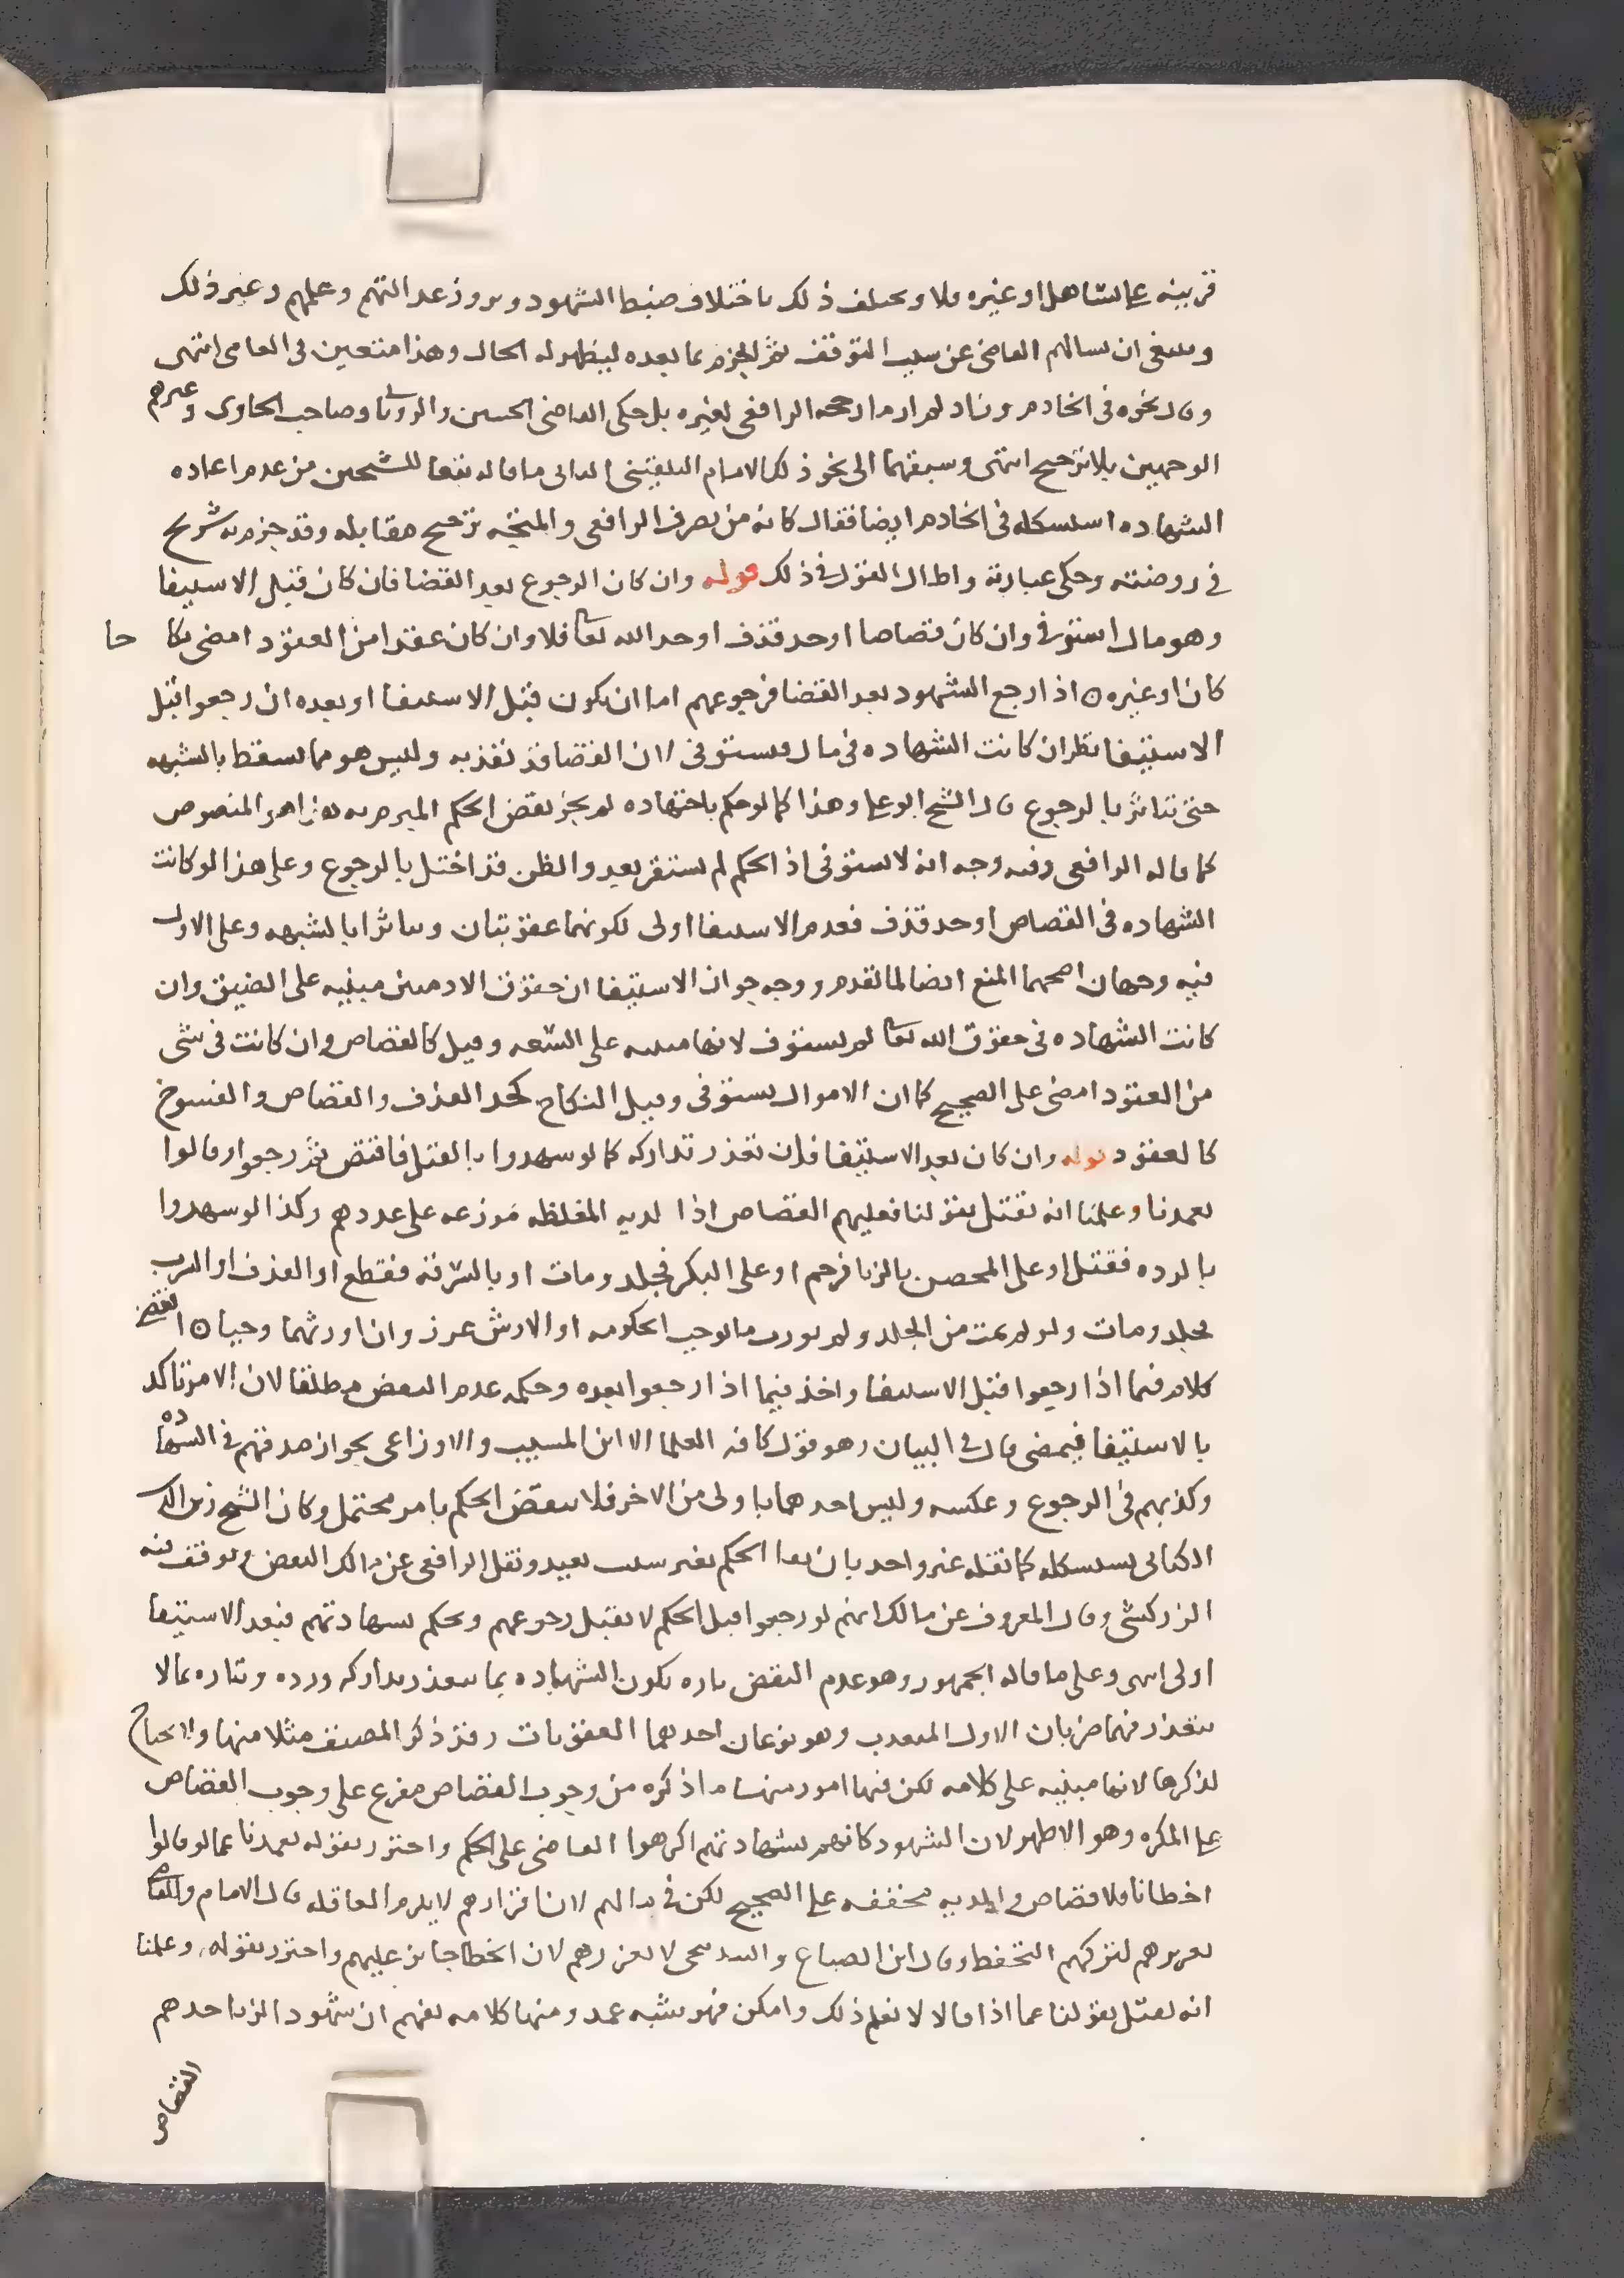 قرينه على التساهل او غيره فلا ويختلف ذلك باختلاف ضبط الشهود وبروز عدالتهم وعلمهم وغير ذلك
وينبغي ان يسالهم القاضي عن سبب التوقف ثم الجزم بما بعده ليظهر له الحال وهذا متعين في العامي انتهى
وقال نحوه في الخادم وزاد لم ار ما رجحه الرافعي لغيره بل حكى القاضي الحسين والروياني وصاحب الحاوى وغيرهم
الوجهين بلا ترجيح انتهى وسبقهما الى نحو ذلك الامام البلقيني ما قاله تبعا للشيخين من عدم اعاده
الشهاده استشكله في الخادم ايضا فقال كانه من تصرف الرافعي والمتجه ترجيح مقابله وقد جزم به شريح
في روضته وحكى عبارته واطال القول في ذلك قوله وان كان الرجوع بعد القضا فان كان قبل الاستيفا
وهو مال استوفي وان كان قصاصا او حد قذف او حد الله تعا فلا وان كان عقدا من العقود امضى نكا حا
كان او غيره ٥ اذا رجع الشهود بعد القضا فرجوعهم اما ان يكون قبل الاستيفا او بعده ان رجعوا قبل
الاستيفا نظر ان كانت الشهاده في مال فيستوفى لان القضا قد نفذ به وليس هو مما يسقط بالشبهه
حتى يتاثر بالرجوع قال الشيخ ابو على وهذا كما لو حكم باجتهاده لم يجز نقض الحكم المبرم به هذا هو المنصوص
كما قاله الرافعي وفيه وجه انه لا يستوفى اذ الحكم لم يستقر بعد والظن قد اختل بالرجوع وعلى هذا لو كانت
الشهاده في القصاص او حد قذف فعدم الاستيفا اولى لكونهما عقوبتان ويتاثرا بالشبهه وعلى الاول
فيه وجهان اصحهما المنع ايضا لما تقدم ووجه جواز الاستيفا ان حقوق الادميين مبنيه على الضيق وان
كانت الشهاده في حقوق الله تعا لم يستوف لانها مبنيه على السعه وقيل كالقصاص وان كانت في شى
من العقود امضى على الصحيح كما ان الاموال يستوفى وقيل النكاح كحد القذف والقصاص والفسوخ
كالعقود قوله وان كان بعد الاستيفا فان تعذر تداركه كما لو شهدوا بالقتل فاقتص ثم رجعوا وقالوا
تعمدنا وعلمنا انه يقتل بقولنا فعليهم القصاص او الديه المغلظه موزعه على عددهم وكذا لو شهدوا
بالرده فقتل او على المحصن بالزنا فرجم او على البكر فجلد ومات او بالسرقه فقطع او القذف او الشرب
فجلد ومات ولو لم يمت من الجلد ولم يورث ما يوجب الحكومه او الارش عزر وان اورثهما وجبا ٥ انقضى
كلامه فيما اذا رجعوا قبل الاستيفا واخذ فيما اذا رجعوا بعده وحكمه عدم النقض مطلقا لان الامر تاكد
بالاستيفا فيمضى قال في البيان وهو قول كافه العلما الا ابن المسيب والاوزاعى بجواز صدقهم في الشهاده
وكذبهم في الرجوع وعكسه وليس احدهما باولى من الاخر فلا ينقض الحكم بامر محتمل وكان الشيخ زين الدين
الكتانى يستشكله كما نقله غير واحد بان بقا الحكم بغير سبب بعيد ونقل الرافعي عن مالك النقض وتوقف فيه
الزركشى وقال المعروف عن مالك انهم لو رجعوا قبل الحكم لا يقبل رجوعهم ويحكم بشهادتهم فبعد الاستيفا
اولى انتهى وعلى ما قاله الجمهور وهو عدم النقض تاره يكون الشهاده بما يتعذر تداركه ورده وتاره بما لا
يتعذر فهما ضربان الاول المتعذر وهو نوعان احدهما العقوبات وقد ذكر المصنف مثلا منها ولا نحتاج
لذكرها لانها مبنيه على كلامه لكن فيها امور منها ما ذكره من وجوب القصاص مفرع على وجوب القصاص
على المكره وهو الاظهر لان الشهود كانهم بشهادتهم اكرهوا القاضى على الحكم واحترز بقوله تعمدنا عما لو قالوا
اخطانا فلا قصاص والديه مخففه على الصحيح لكن في مالهم لان اقرارهم لا يلزم العاقله قال الامام وللقاضى
تعزيرهم لتركهم التحفظ وقال ابن الصباغ والبندنيجى لا تعزرهم لان الخطا جايز عليهم واحترز بقوله وعلمنا
انه يقتل بقولنا عما اذا قالا لا نعلم ذلك وامكن فهو شبه عمد ومنها كلامه يفهم ان شهود الزنا احدهم
القصاص